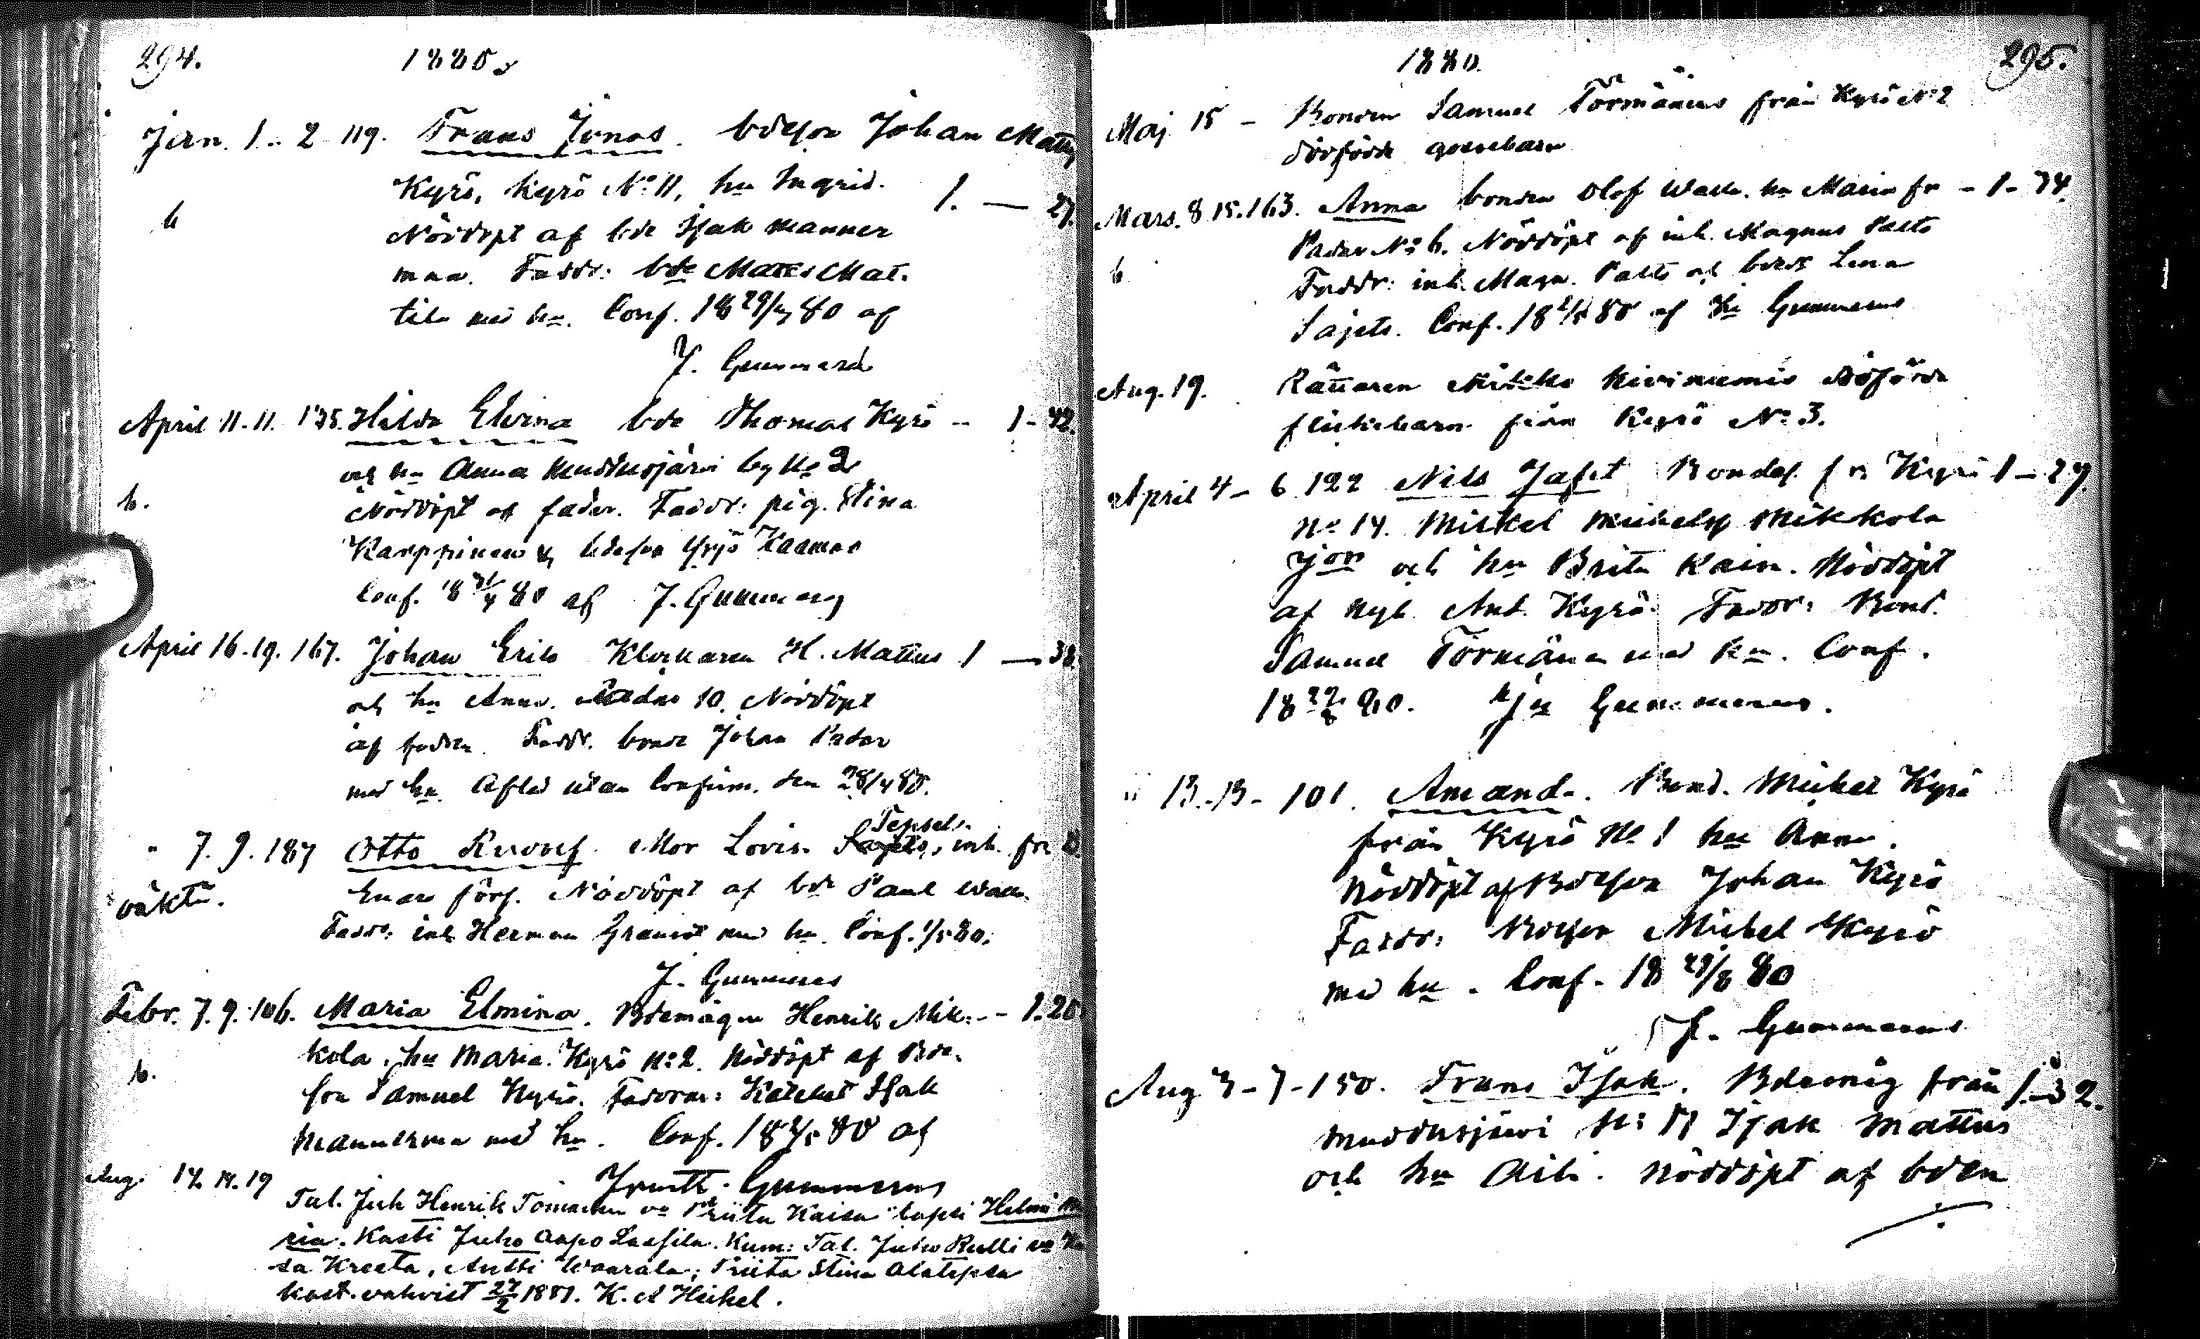 294. 1880
Jan. 1 - 2 119. Frans Jonas. bdeson Johan Mattus
Kyrö, Kyrö No 11, hu Ingrid. 1. — 27.
b Nöddöpt af bde Isak Manner
maa. Faddr: bde Matts Mat.
tila med hu. Conf. 18 29/4 80 af
J. Gummerus
April 11. 11. 135. Hilda Elvina bde Thomas Kyrö - 1 - 42.
och hu Anna Muddusjärvi by No 2
b. Nöddöpt af fader. Faddr: pig. Stina
Karppinen & bdeson Yrjö Kaamas
Conf. 18 /4 80 af J. Gummerus
April 16. 19. 167. Johan Erik Klockaren H. Mattus 1 — 38
och hu Anna. 10. Nöddöpt
af fadren. Faddr. bonde Johan Padar
med hu. Afled utan Confirm. den 28/4 80.
" 7. 9. 187 Otto Rudolf. Mor Lovis. Tepsels. inh. fr
oäkta. Enare förs. Nöddöpt af bde Paul Walle.
Faddr: inh Herman Granrot med hu. Conf. 1/5 80.
J. Gummerus
Febr. 7. 9. 106. Maria Elmina. Bdemågen Henrik Mik- - 1. 20
kola, hu Maria. Kyrö No 2. Nöddöpt af Bde-
b. son Samuel Kyrö. Faddrar: Kateket Isak
Mannermaa med hu. Conf. 18 2/5 80 af
Gummerus
Aug. 14. 19 Tal. Juh Henrik Tomanen va Priita Kaisa lapsi Helmi Ma
ria. Kasti Juho Aapo Laasila. Kum: Tal. Juho Rulli va
sa Kreeta, Antti Waarala, Priita Stina Alatepsa
kast. vahvist 27/2 1881. K. A Heikel.
1880. 295.
Maj 15 - Bonden Samuel Törmänen från Kyrö No 2
dödfödde gossebarn
Mars. 8. 15. 163. Anna bonden Olof Walle. hu Maria fr - 1 - 34.
Padar No 6. Nöddöpt af inh. Magnus Palto
b Faddr: inh. Magn. Palto och bdedr Lena
Sajets. Conf. 18 2/5 80 af Gummerus
Aug. 19. Rättaren Mikko Kiviniemis dödfödde
flickebarn från Kyrö No 3.
April 4 - 6 122 Nils Jafet Bondes. fr. Kyrö 1 - 27.
No 14. Mickel Michelss Mikkola
jor och hu Brita Kain. Nöddöpt
af nyb. Ant. Kyrö. Faddr: Bond.
Samuel Törmänen med hu. Conf.
18 29/8 80. Gummerus.
" 13. 13 - 101. Amanda. Bond. Michel Kyrö
från Kyrö No 1 hu Anna.
Nöddöpt af Bdeson Johan Kyrö
Faddr: Bdeson Michel Kyrö
med hu. Conf. 18 29/8 80
J. Gummerus
Aug 3 - 7 - 150. Frans Isak. Bdemåg från 1. - 32.
Muddusjärvi No 11 Isak Mattus
och hu Aili. Nöddöpt af bden